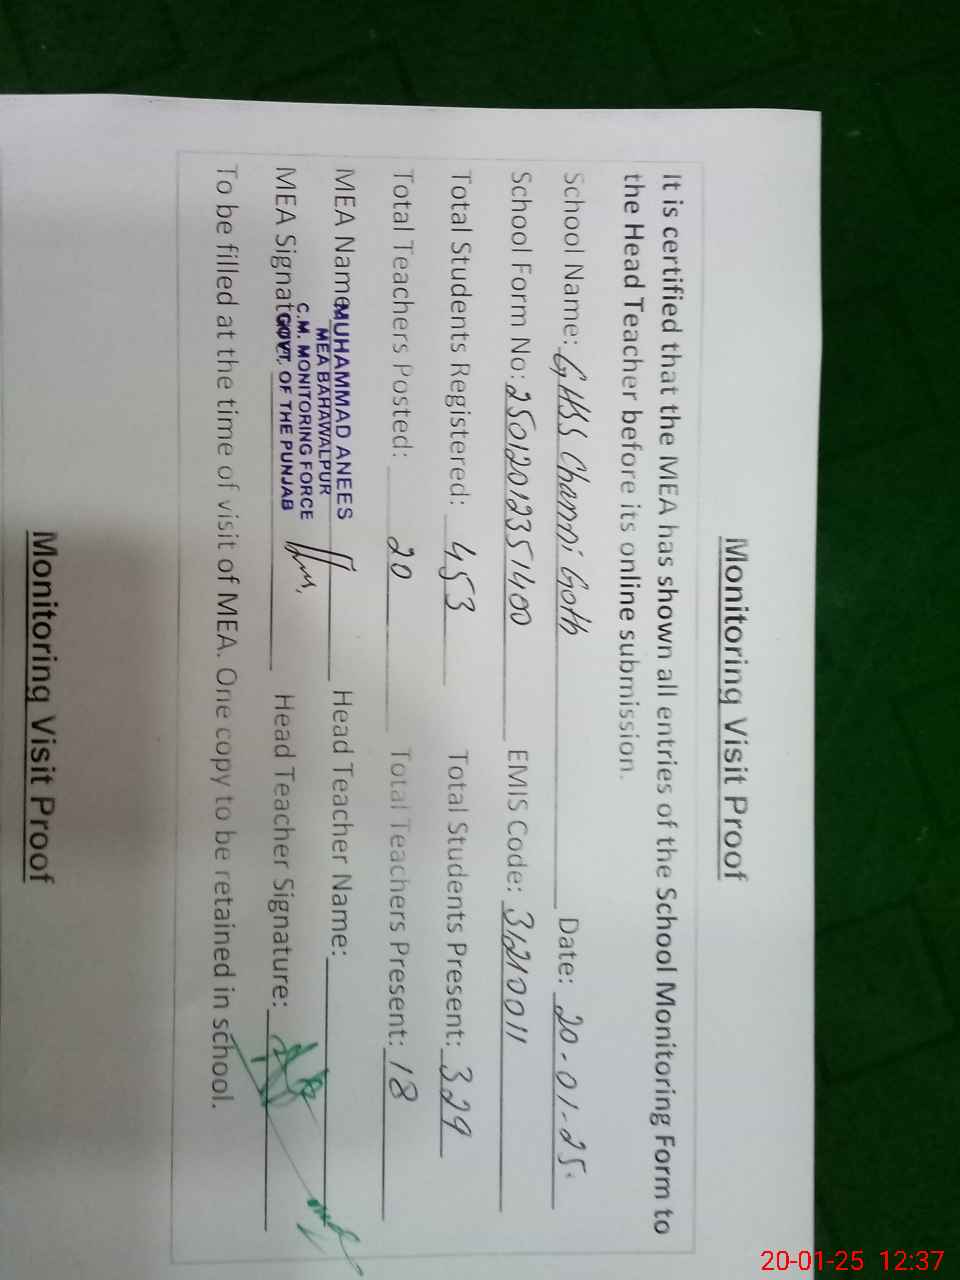 Monitoring Visit Proof
It is certified that the MEA has shown all entries of the School Monitoring Form to
the Head Teacher before its online submission.
School Name: GHSS Channi Goth Date: 20-01-25
School Form No: 25012012351400 EMIS Code: 31210011
Total Students Registered: 453 Total Students Present: 329
Total Teachers Posted: 20 Total Teachers Present: 18
MEA Name: MUHAMMAD ANEES Head Teacher Name:
MEA BAHAWALPUR
C.M. MONITORING FORCE
MEA Signature: GOVT. OF THE PUNJAB Head Teacher Signature:
To be filled at the time of visit of MEA. One copy to be retained in school.
Monitoring Visit Proof
20-01-25 12:37